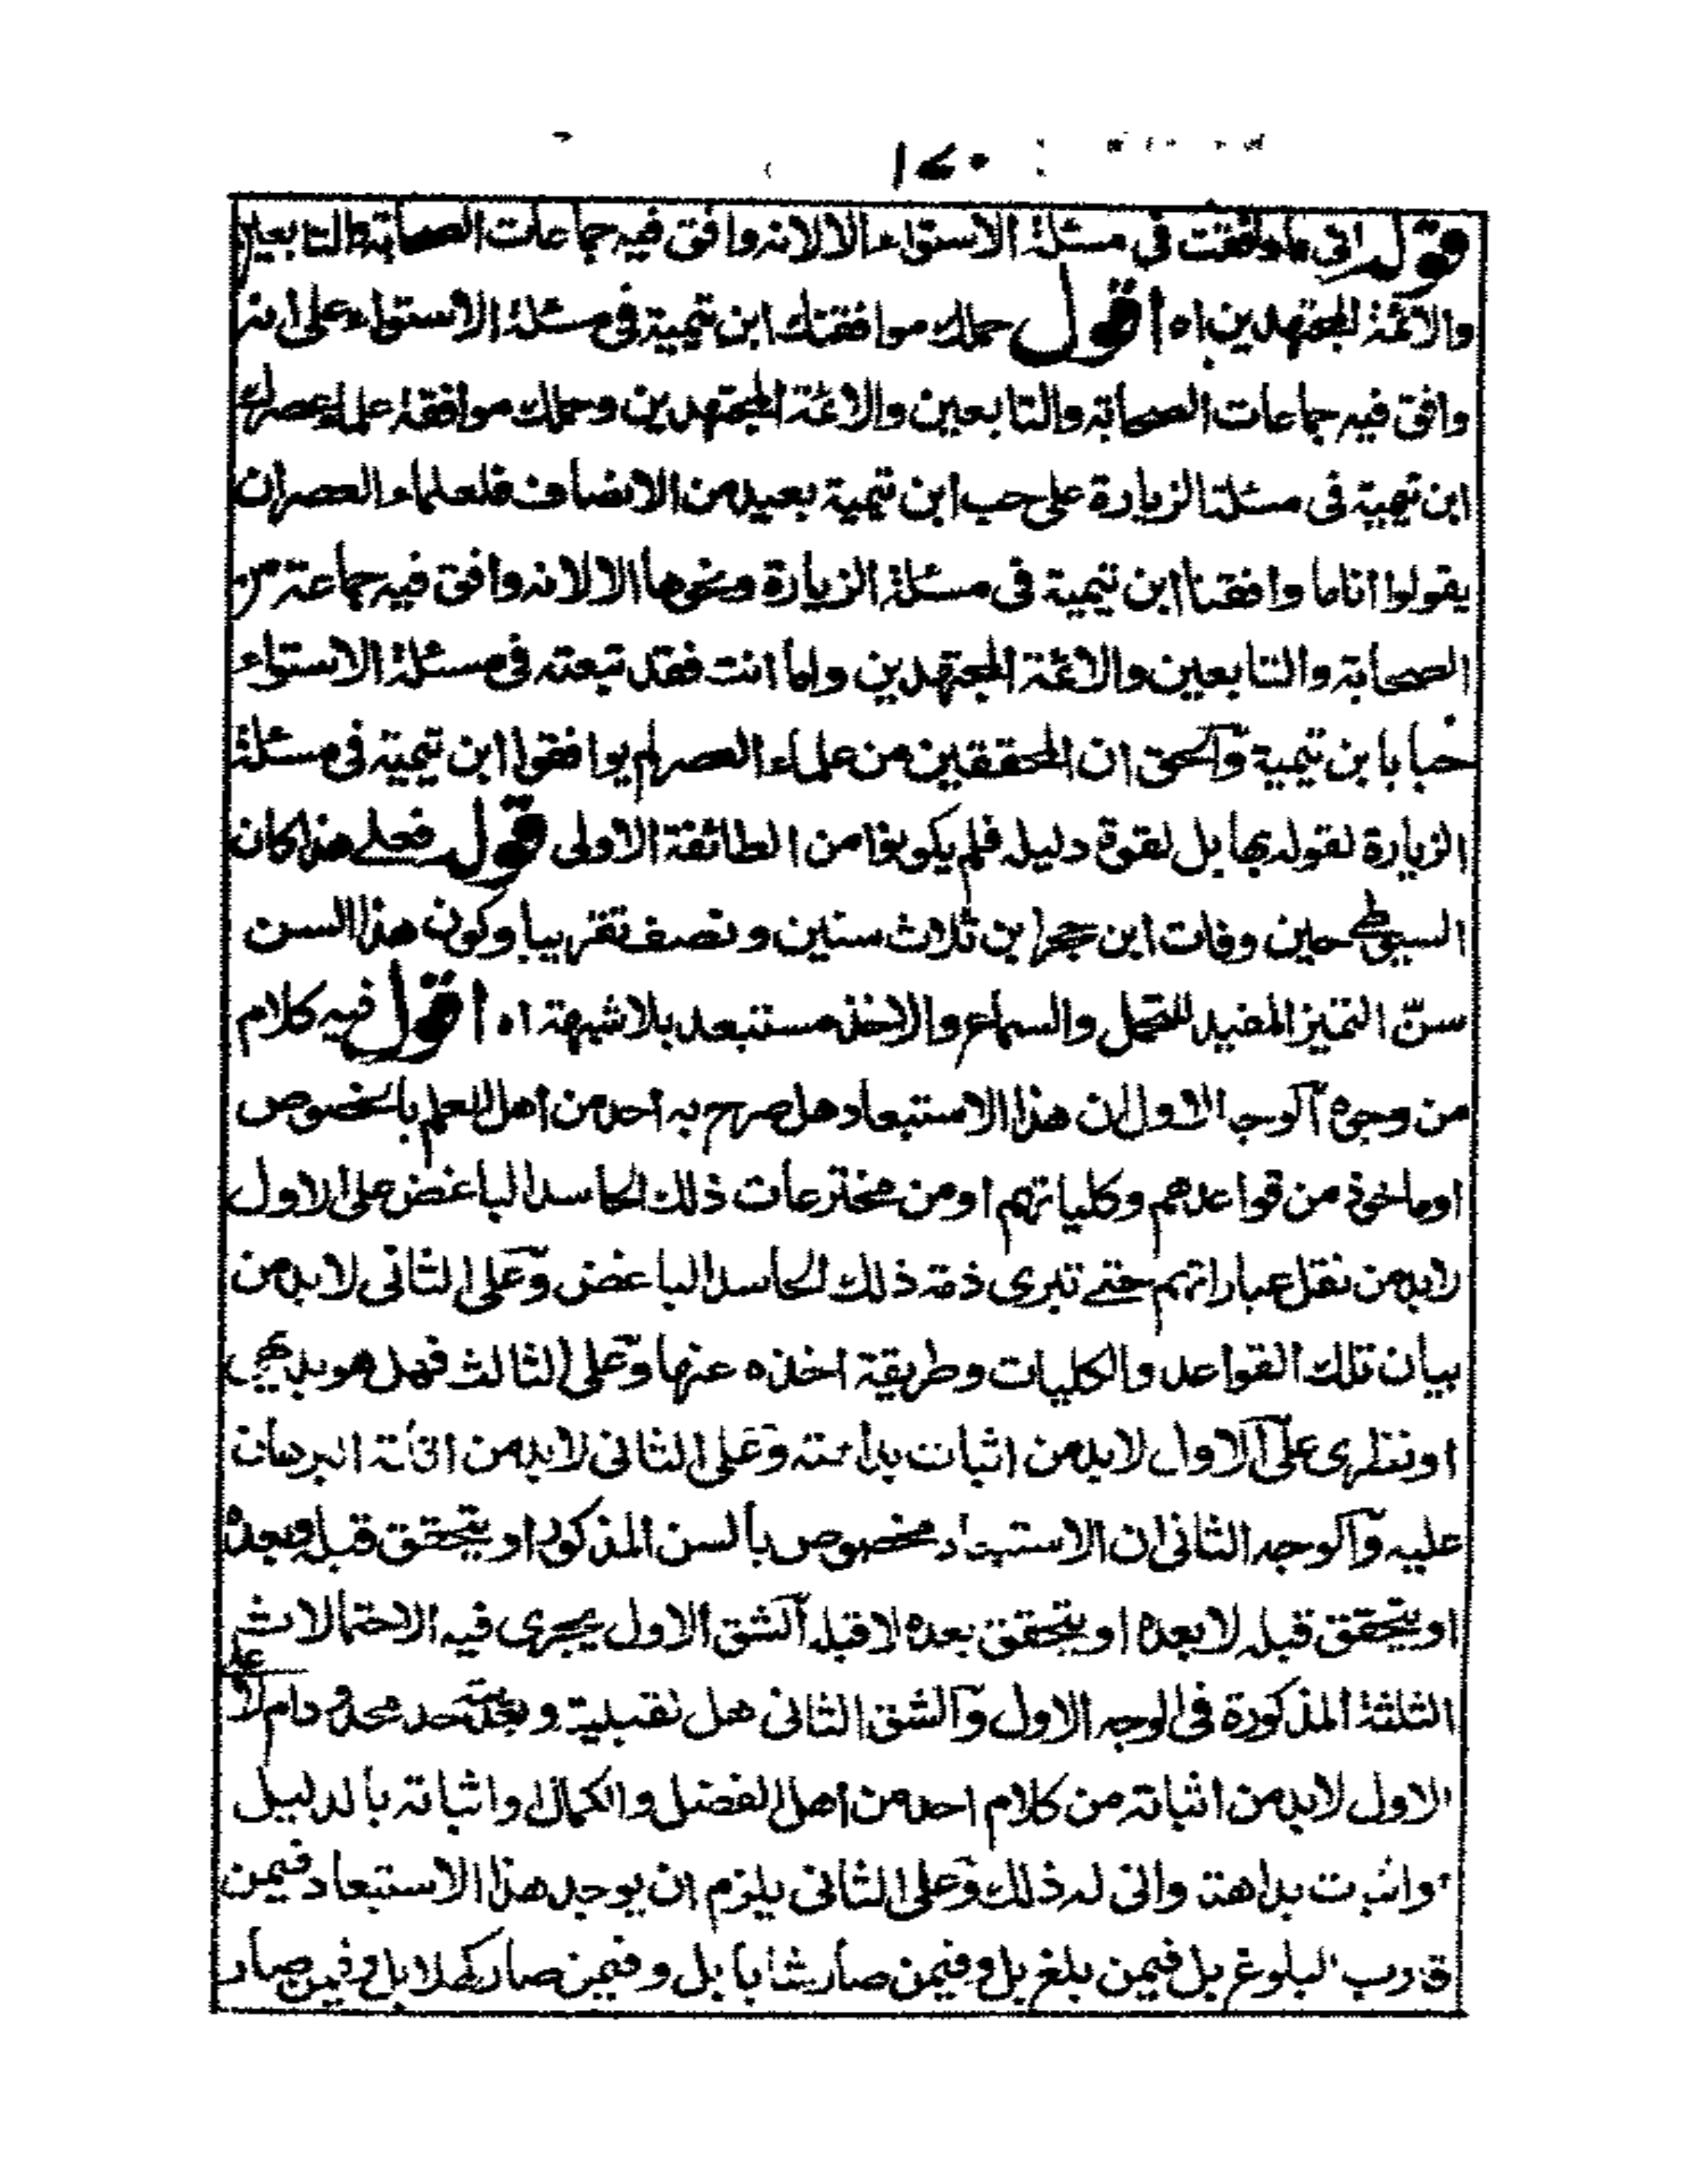 ١٤٠
قوله انى ما وافقت فى مسئلة الاستواء الا لانه وافق فيه جماعات الصحابة والتابعين
والائمة المجتهدين اه اقول حملك موافقتك ابن تيمية فى مسئلة الاستواء على انه
وافق فيه جماعات الصحابة والتابعين والائمة المجتهدين وحملك موافقة علماء عصرك
ابن تيمية فى مسئلة الزيارة على حب ابن تيمية بعيد من الانصاف فلعلماء العصر ان
يقولوا اناما وافقنا ابن تيمية فى مسئلة الزيارة ونحوها الا لانه وافق فيه جماعة من
الصحابة والتابعين والائمة المجتهدين واما انت فقد تبعته فى مسئلة الاستواء
حبا بابن تيمية والحق ان المحققين من علماء العصر لم يوافقوا ابن تيمية فى مسئلة
الزيارة لقوله بها بل لقوة دليله فلم يكونوا من الطائفة الاولى قوله فعلى هذا كان
السيوطى حين وفات ابن حجر ابن ثلاث سنين ونصف تقريبا وكون هذا السن
سنّ التميز المفيد للتحمل والسماع والاخذ مستبعد بلا شبهة اه اقول فيه كلام
من وجوه الوجه الاول ان هذا الاستبعاد هل صرح به احد من اهل العلم بالخصوص
او ماخوذ من قواعدهم وكلياتهم او من مخترعات ذلك الحاسد الباغض على الاول
لابد من نقل عباراتهم حتى تبرى ذمة ذلك الحاسد الباغض وعلى الثانى لابد من
بيان تلك القواعد والكليات وطريقة اخذه عنها وعلى الثالث فهل هو بديهى
او نظرى على الاول لابد من اثبات بداهته وعلى الثانى لابد من اقامة البرهان
عليه والوجه الثانى ان الاستبعاد مخصوص بالسن المذكور او يتحقق قبله وبعده
او يتحقق قبله لا بعده او يتحقق بعده لا قبله الشق الاول يجرى فيه الاحتمالات
الثلثة المذكورة فى الوجه الاول والشق الثانى هل لقبلية وبعدية حد محدود ام لا على
الاول لابد من اثباته من كلام احد من اهل الفضل والكمال او اثباته بالدليل
او اثبت بداهة وانى له ذلك وعلى الثانى يلزم ان يوجد هذا الاستبعاد فيمن
قارب البلوغ بل فيمن بلغ بل وفيمن صار شابا بل وفيمن صار كهلا بل وفيمن صار